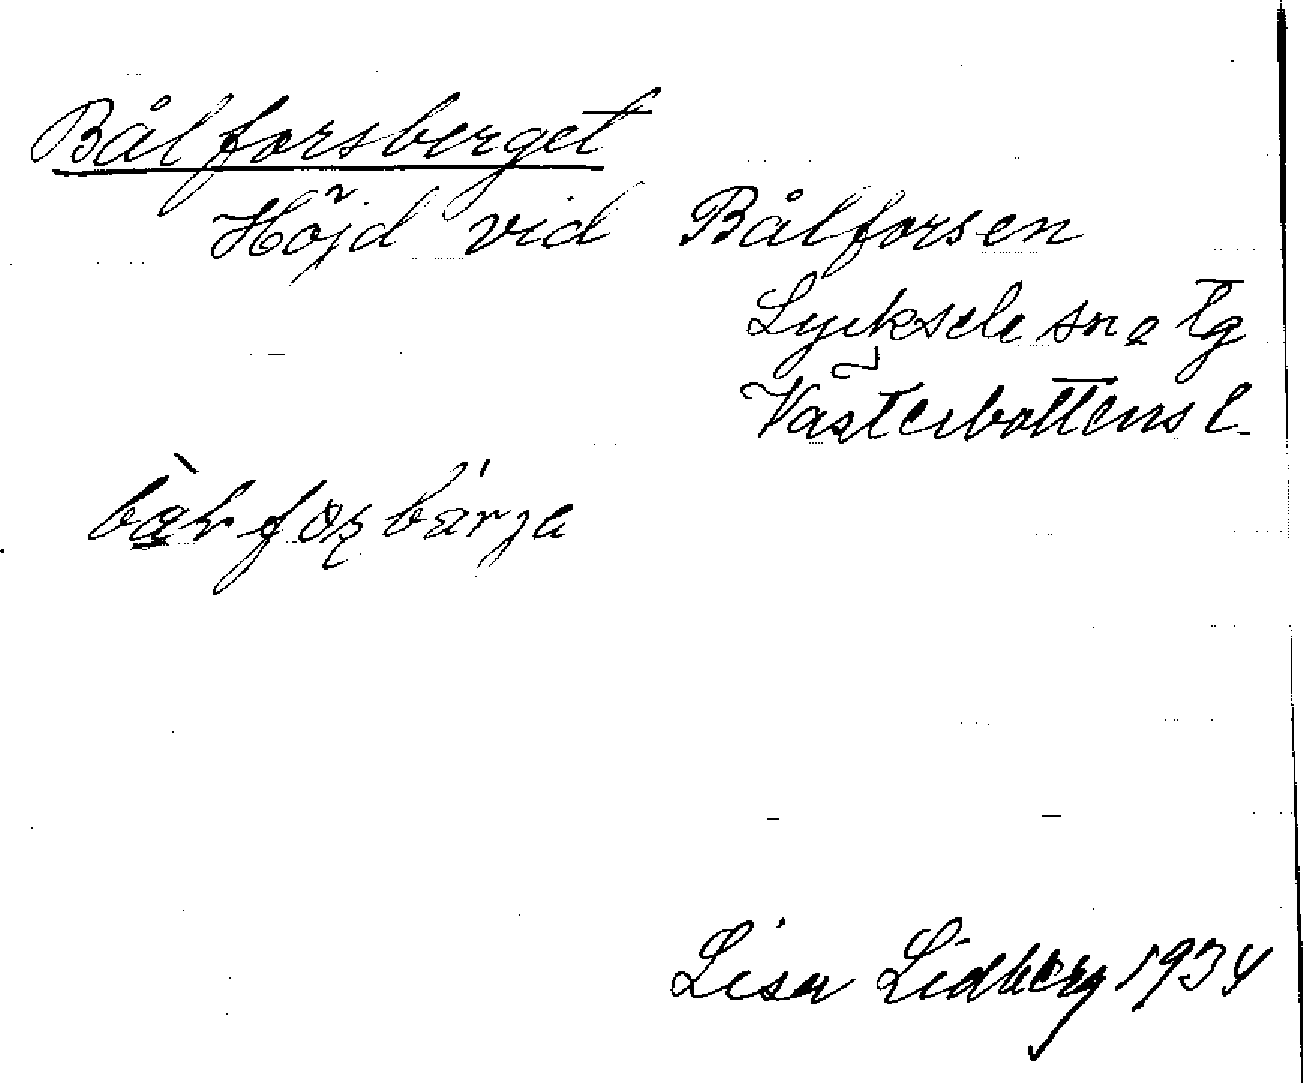 Bålforsberget
Höjd vid Bålforsen
Lycksele sn o tg
Västerbottens l.
Lisa Lidberg 1934